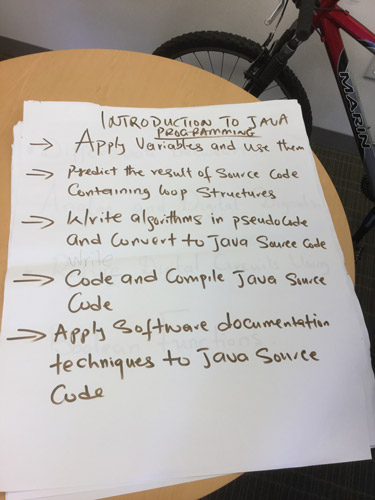 INTRODUCTION TO JAVA
PROGRAMMING
→ Apply Variables and Use them
→ Predict the result of Source Code
Containing loop Structures
→ Write algorithms in pseudocode
and Convert to Java Source Code
→ Code and Compile Java Source
Code
→ Apply Software documentation
techniques to Java Source
Code
MARIN